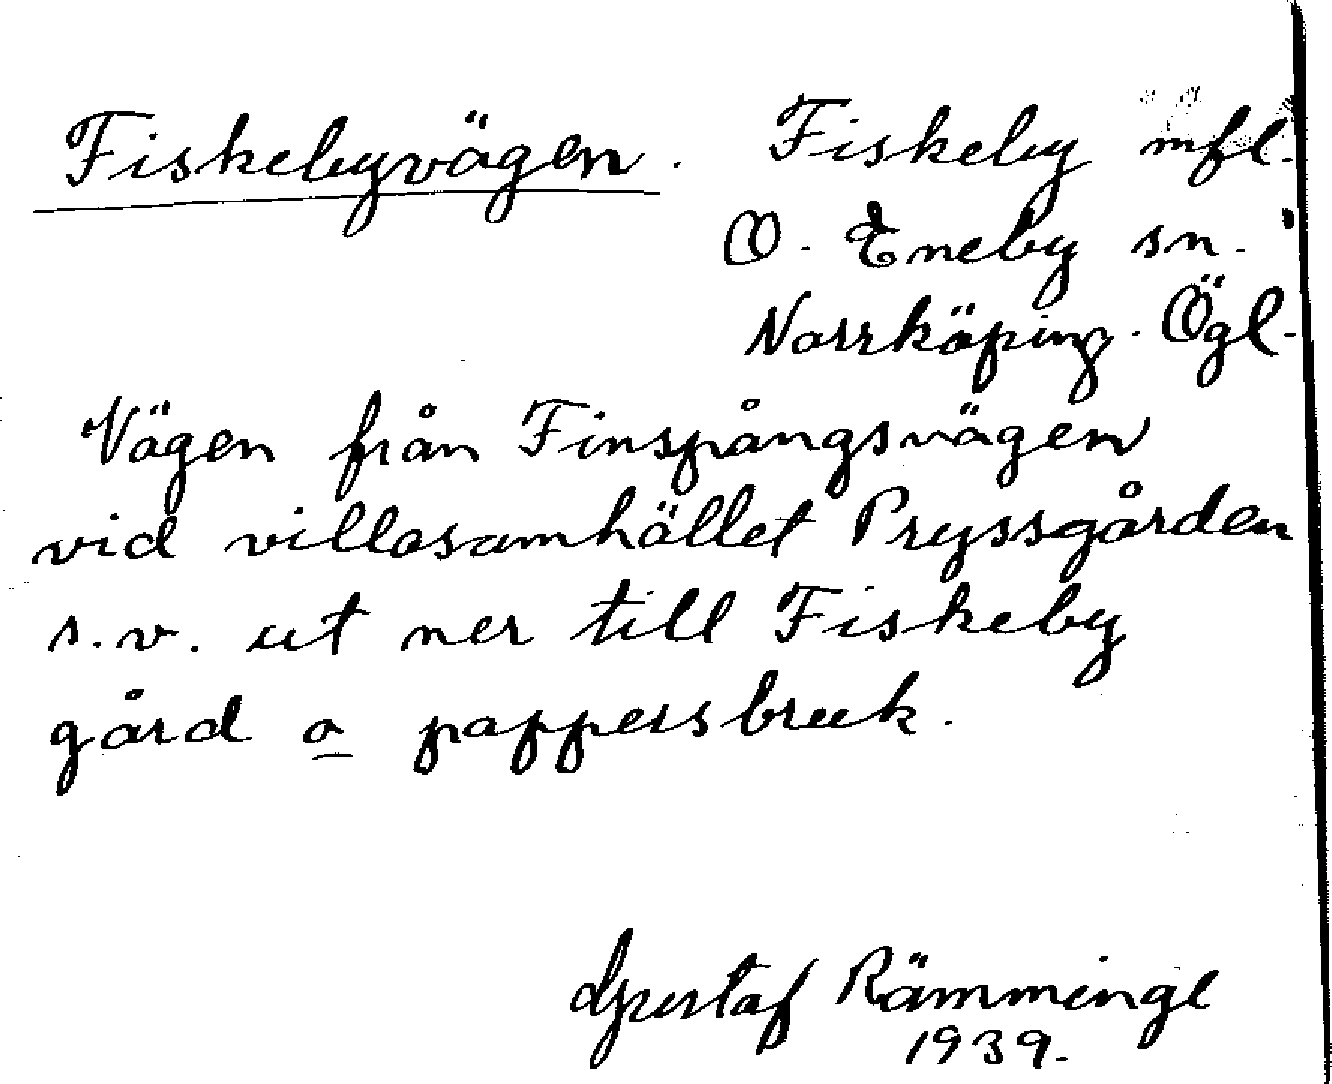 Fiskebyvägen. Fiskeby mfl.
O. Eneby sn.
Norrköping. Ögl.
Vägen från Finspångsvägen
vid villasamhället Pryssgården
s.v. ut ner till Fiskeby
gård o pappersbruk.
Gustaf Rämminge
1939.